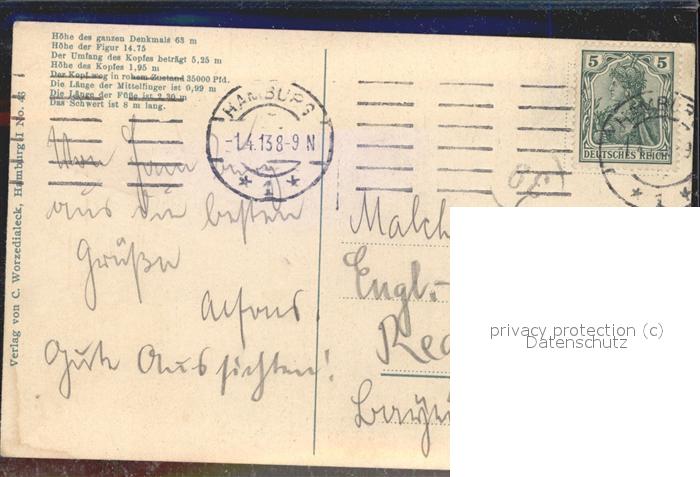 Höhe des ganzen Denkmals 63 m
Höhe der Figur 14.75
Der Umfang des Kopfes beträgt 5,25 m
Höhe des Kopfes 1,95 m
Der Kopf wog in rohem Zustand 35000 Pfd.
Die Länge der Mittelfinger ist 0,99 m
Die Länge der Füße ist 2.30 m
Das Schwert ist 8 m lang.
Verlag von C. Worzedialeck, Hamburg II No. 46
HAMBURG
-1.4.13 8-9 N
* 1 *
5 5
DEUTSCHES REICH
HAMBUR
* 1 *
aus die besten
Grüße
Alfons.
Gute Aussichten!
Malch
Engl.-
Red
Baye
privacy protection (c)
Datenschutz